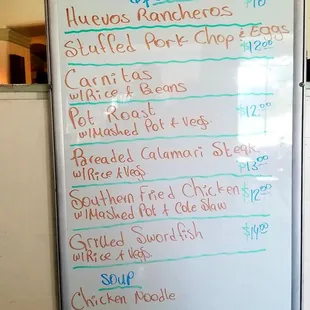 Huevos Rancheros $10
Stuffed Pork Chop & Eggs
$12.00
Carnitas
w/Rice & Beans
Pot Roast $12.00
w/Mashed Pot & Vegs.
Breaded Calamari Steak
w/Rice & Vegs $13.00
Southern Fried Chicken $12.00
w/Mashed Pot & Cole Slaw
Grilled Swordfish $14.00
w/Rice & Vegs
SOUP
Chicken Noodle